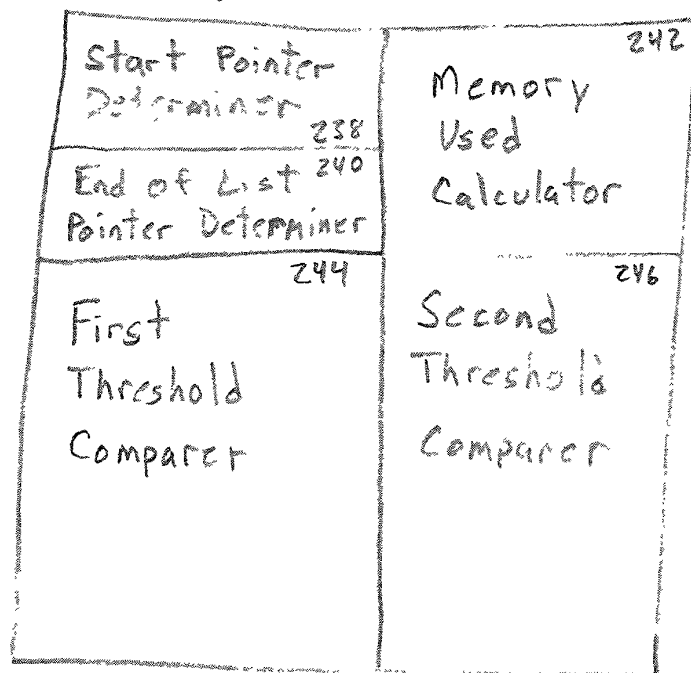 Start Pointer
Determiner
238
240
End of List
Pointer Determiner
242
Memory
Used
Calculator
244
First
Threshold
Comparer
246
Second
Threshold
Comparer